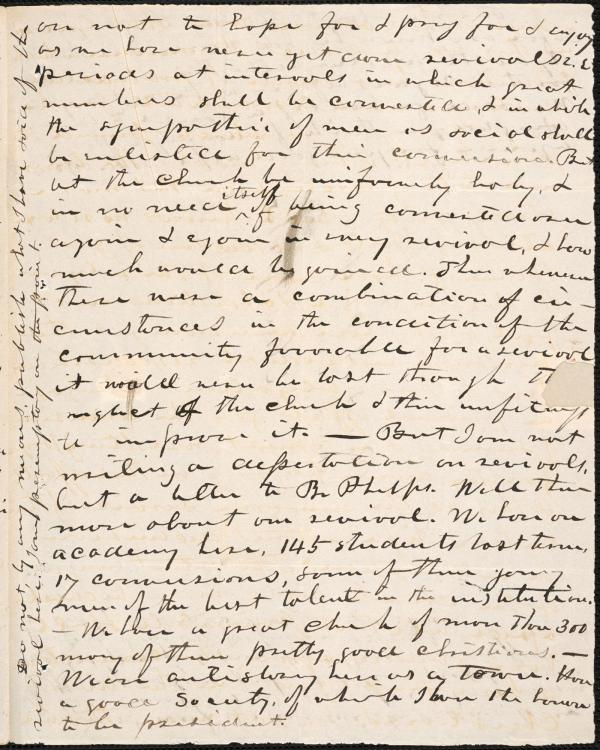 are not to hope for & pray for & enjoy
as we have never yet done revivals i.e.
periods at intervals in which great
numbers shall be converted, & in which
the sympathies of men as social shall
be enlisted for their conversion. But
let the church be uniformly holy, &
in no need itself of being converted over
again & again in every revival, & how
much would be gained. Then whenever
there were a combination of cir-
cumstances in the condition of the
community favorable for a revival
it would never be lost through the
neglect of the church & their unfitness
to improve it. — But I am not
writing a dessertation on revivals,
but a letter to Br. Phelps. Well then
more about our revival. We have an
academy here, 145 students last term,
17 conversions, some of them young
men of the best talent in the institution.
— We have a great church of more than 300
many of them pretty good christians. —
We are antislavery here as a town. Have
a good Society, of which I have the honor
to be president.
Do not, by any means, publish what I have said of the
revival here. I am peremptory on this point.